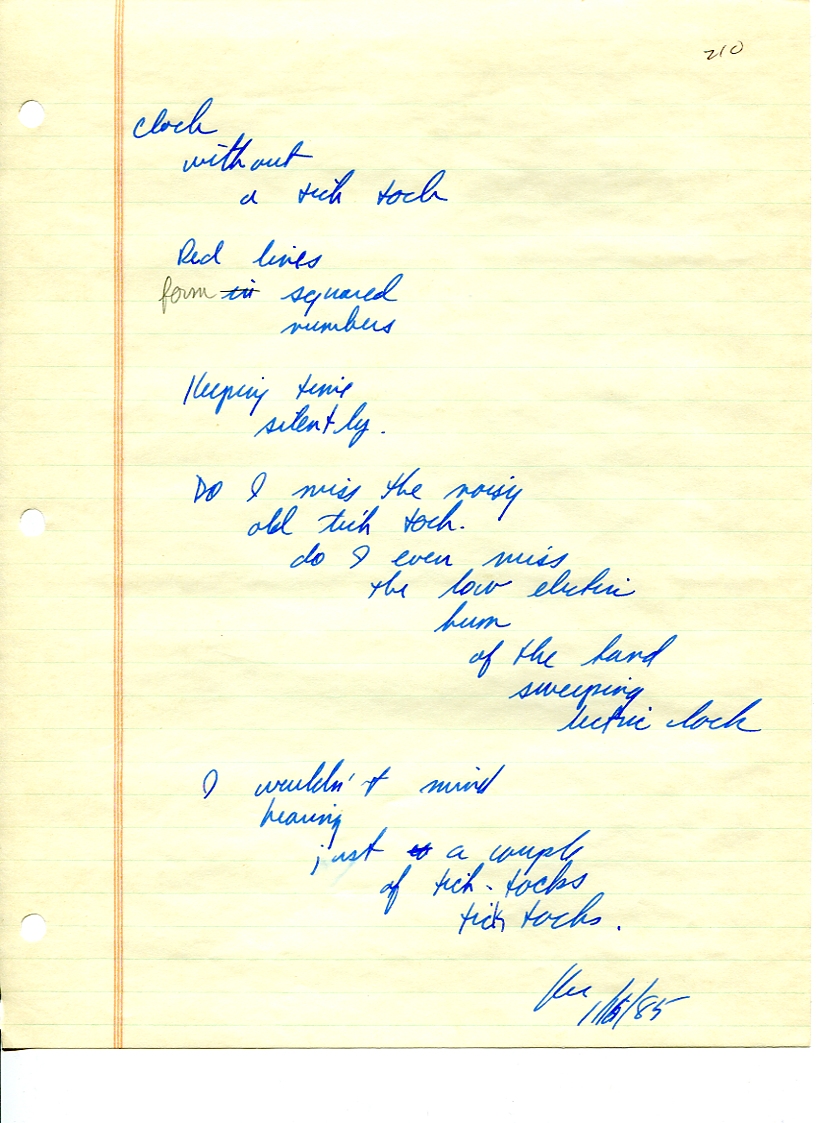 210
clock
without
a tick tock
Red lines
form in squared
numbers
Keeping time
silently.
Do I miss the noisy
old tick tock.
do I even miss
the low electric
hum
of the hand
sweeping
lectric clock
I wouldn't mind
hearing
just a couple
of tick-tocks
tick tocks.
/85